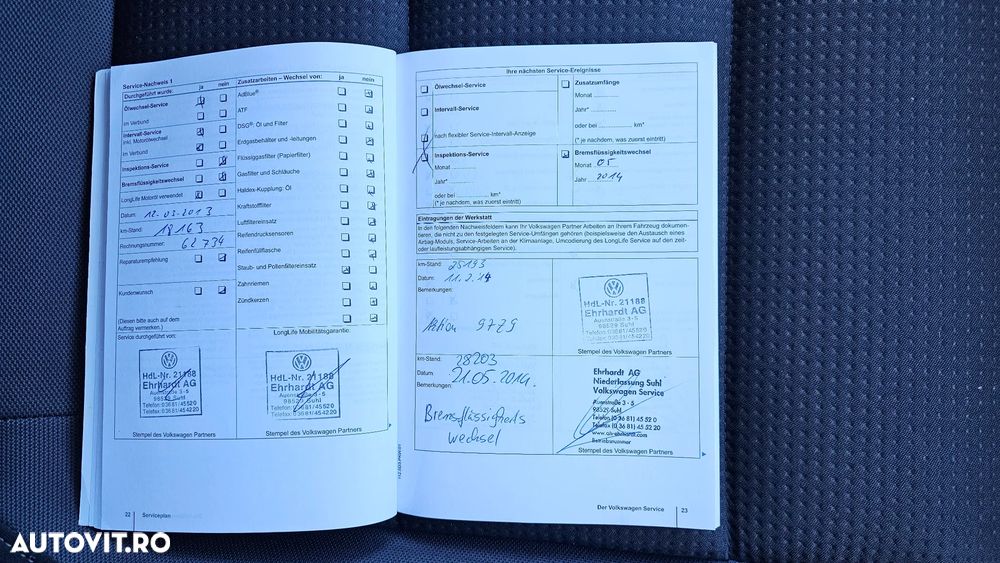 Service-Nachweis 1
Durchgeführt wurde: ja nein
Ölwechsel-Service
im Verbund
Intervall-Service
inkl. Motorölwechsel
im Verbund
Inspektions-Service
Bremsflüssigkeitswechsel
LongLife Motoröl verwendet:
Datum: 12.03.2013
km-Stand: 18163
Rechnungsnummer: 62734
Reparaturempfehlung
Kundenwunsch
(Diesen bitte auch auf dem
Auftrag vermerken.)
Service durchgeführt von:
HdL-Nr. 21188
Ehrhardt AG
Auenstraße 3-5
98529 Suhl
Telefon: 03681/45520
Telefax: 03681/454220
Stempel des Volkswagen Partners
Zusatzarbeiten – Wechsel von: ja nein
AdBlue®
ATF
DSG®: Öl und Filter
Erdgasbehälter und -leitungen
Flüssiggasfilter (Papierfilter)
Gasfilter und Schläuche
Haldex-Kupplung: Öl
Kraftstofffilter
Luftfiltereinsatz
Reifendrucksensoren
Reifenfüllflasche
Staub- und Pollenfiltereinsatz
Zahnriemen
Zündkerzen
LongLife Mobilitätsgarantie:
HdL-Nr. 21188
Ehrhardt AG
Auenstraße 3-5
98529 Suhl
Telefon: 03681/45520
Telefax: 03681/454220
Stempel des Volkswagen Partners
22 Serviceplan
Ihre nächsten Service-Ereignisse
Ölwechsel-Service
Intervall-Service
nach flexibler Service-Intervall-Anzeige
Inspektions-Service
Monat
Jahr*
oder bei km*
(* je nachdem, was zuerst eintritt)
Zusatzumfänge
Monat
Jahr*
oder bei km*
(* je nachdem, was zuerst eintritt)
Bremsflüssigkeitswechsel
Monat 05
Jahr 2014
Eintragungen der Werkstatt
In den folgenden Nachweisfeldern kann Ihr Volkswagen Partner Arbeiten an Ihrem Fahrzeug dokumen-
tieren, die nicht zu den festgelegten Service-Umfängen gehören (beispielsweise den Austausch eines
Airbag-Moduls, Service-Arbeiten an der Klimaanlage, Umcodierung des LongLife Service auf den zeit-
oder laufleistungsabhängigen Service).
km-Stand: 25193
Datum: 11.2.14
Bemerkungen:
Aktion 97Z9
HdL-Nr. 21188
Ehrhardt AG
Auenstraße 3-5
98529 Suhl
Telefon: 03681/45520
Telefax: 03681/454220
Stempel des Volkswagen Partners
km-Stand: 28203
Datum 21.05.2014.
Bemerkungen:
Bremsflüssigkeits
wechsel
Ehrhardt AG
Niederlassung Suhl
Volkswagen Service
Auenstraße 3 - 5
98529 Suhl
Telefon (0 36 81) 45 52 0
Telefax (0 36 81) 45 52 20
Betriebsnummer
Stempel des Volkswagen Partners
Der Volkswagen Service 23
AUTOVIT.RO